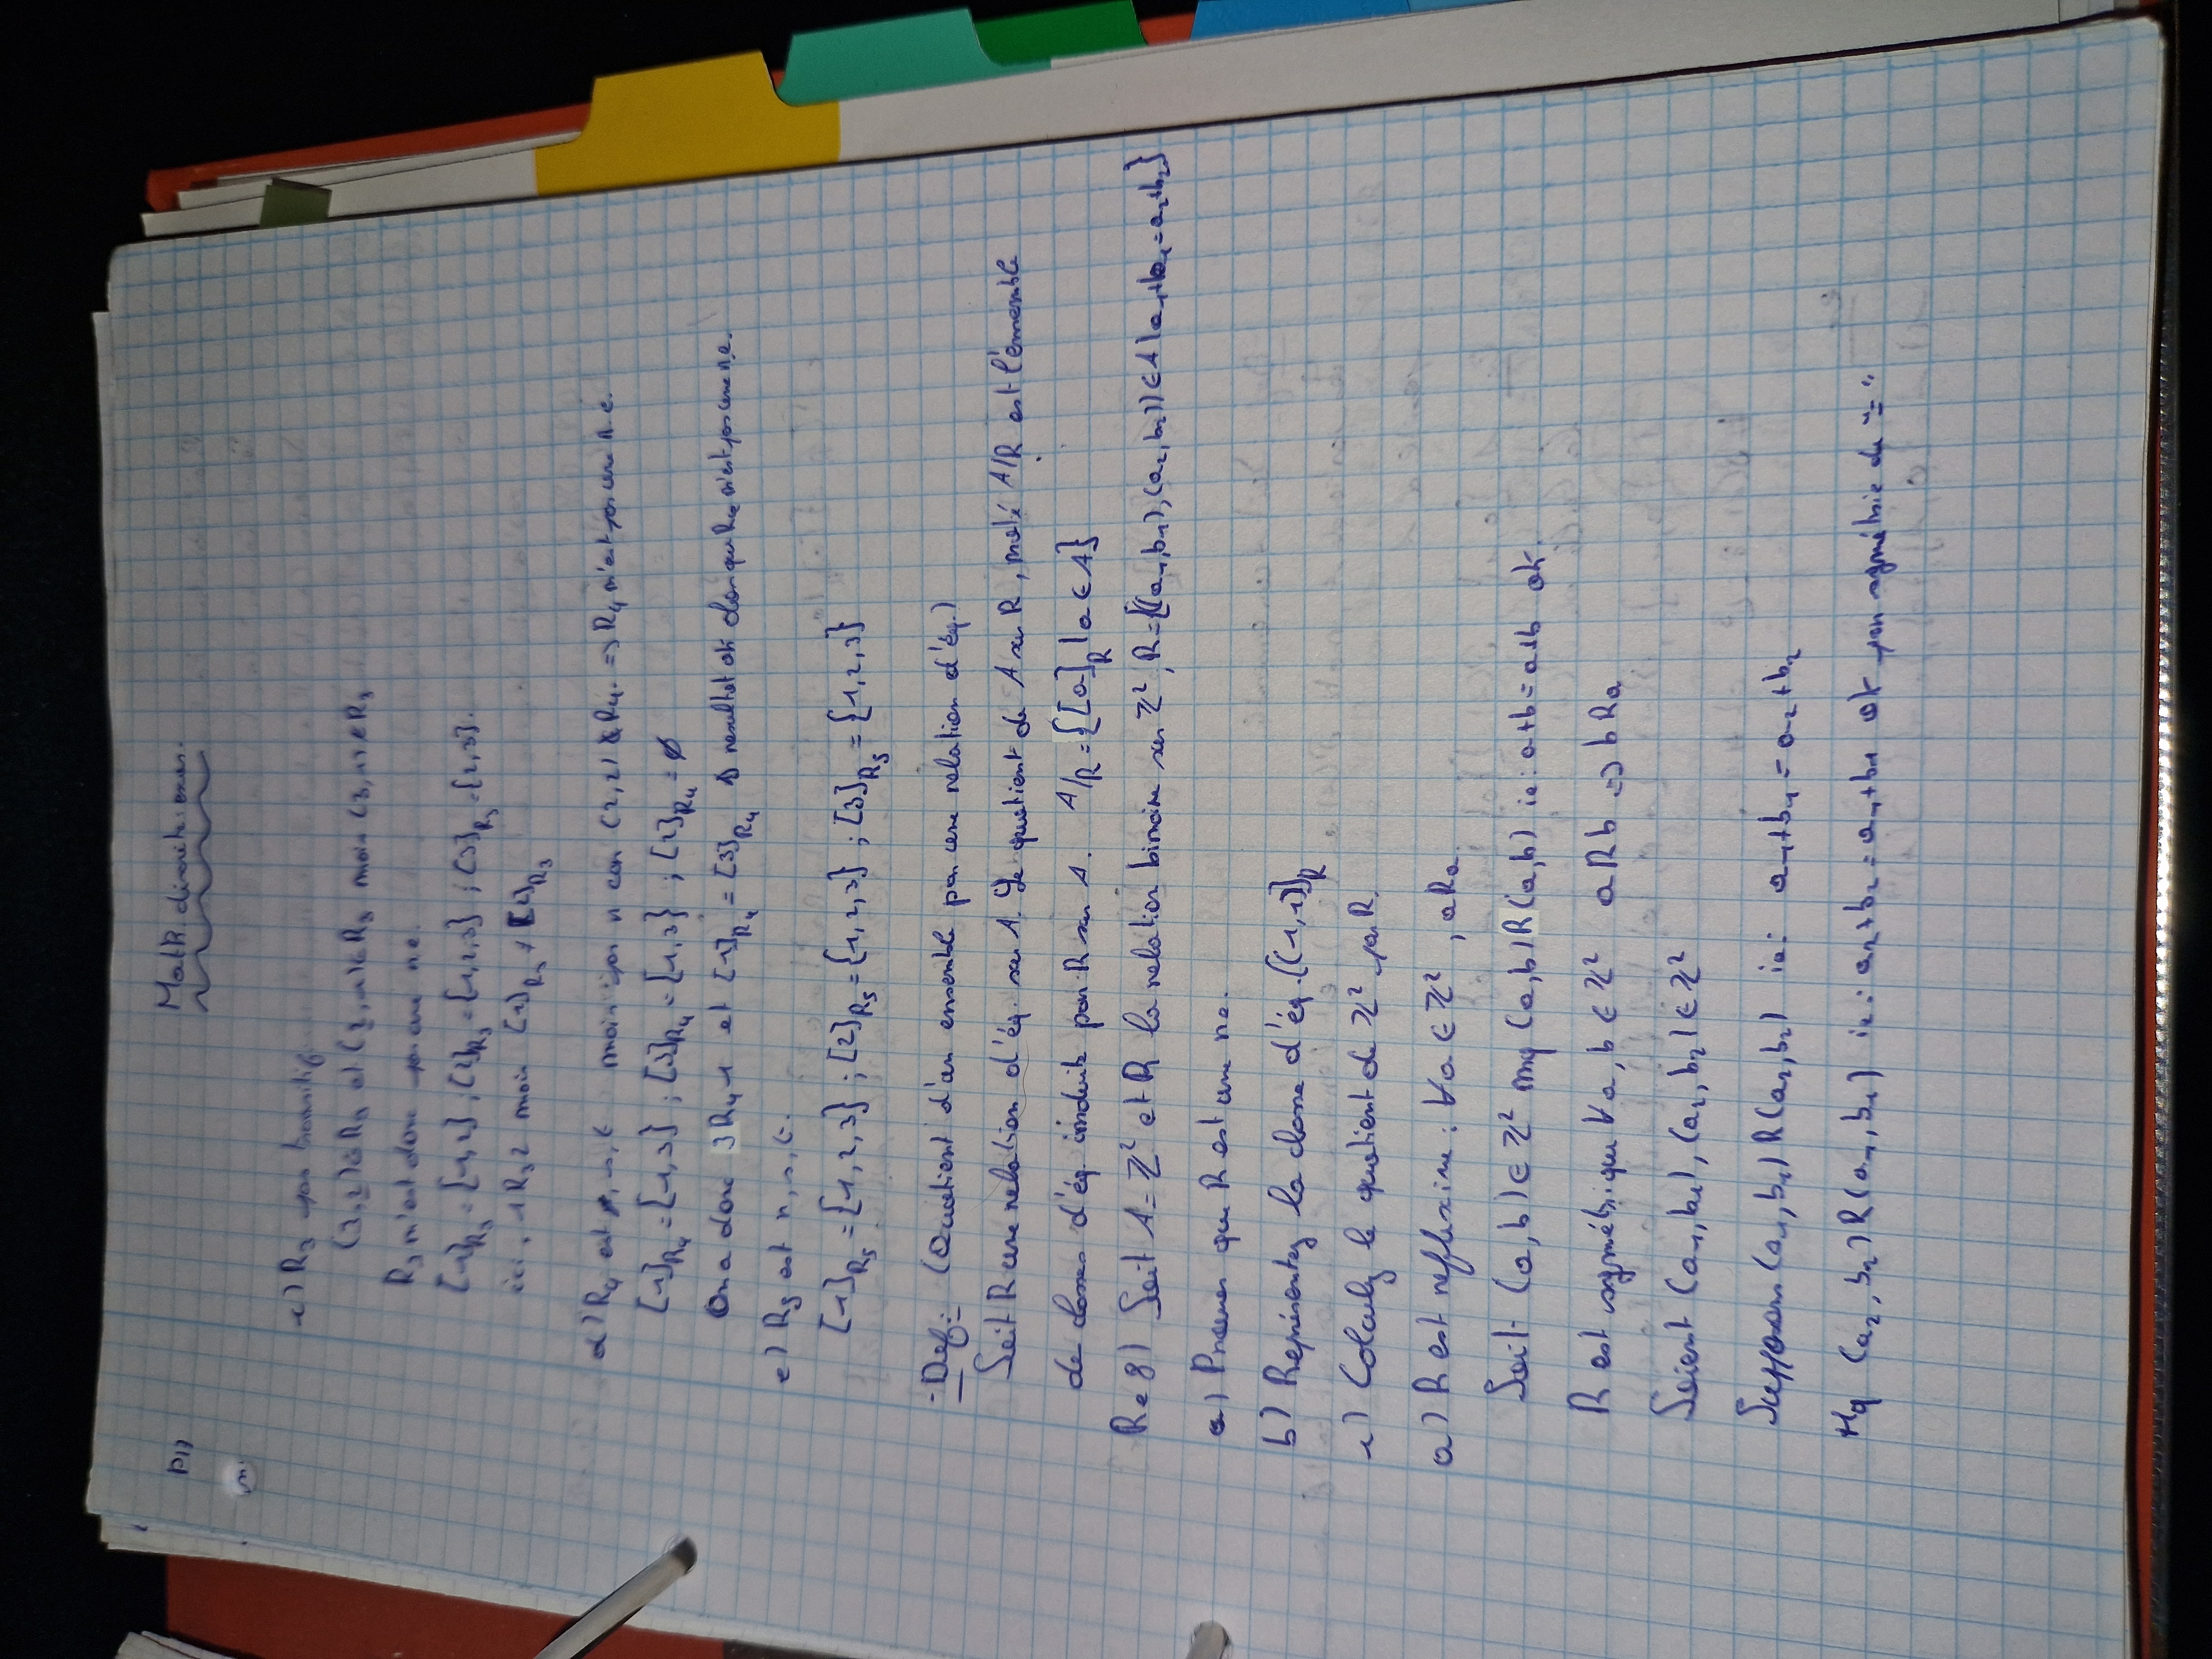 Math discrète: exos.
c) R₃ pas transitif.
(3,2)∈R₃ et (2,1)∈R₃ mais (3,1)∉R₃
R₃ n'est donc pas une r.e.
[1]R₃ = {1,2} ; [2]R₃ = {1,2,3} ; [3]R₃ = {2,3}.
ici, 1R₃2 mais [1]R₃ ≠ [2]R₃
d) R₄ est s, t mais pas r car (2,2)∉R₄. => R₄ n'est pas une r.e.
[1]R₄ = {1,3} ; [3]R₄ = {1,3} ; [2]R₄ = ∅
On a donc 3R₄1 et [1]R₄ = [3]R₄ résultat ok alors que R₄ n'est pas une r.e.
e) R₅ est r, s, t.
[1]R₅ = {1,2,3} ; [2]R₅ = {1,2,3} ; [3]R₅ = {1,2,3}
- Def: (Quotient d'un ensemble par une relation d'éq.)
Soit R une relation d'éq. sur A. Le quotient de A sur R, noté A/R est l'ensemble
de classes d'éq. induite par R sur A. A/R = {[a]R | a ∈ A}
Re 8) Soit A = ℤ² et R la relation binaire sur ℤ², R = {((a₁,b₁),(a₂,b₂)) ∈ A | a₁+b₁ = a₂+b₂}
a) Prouver que R est une re.
b) Représentez la classe d'éq. [(1,1)]R
c) Calculez le quotient de ℤ² par R.
a) R est reflexive : ∀a ∈ ℤ², aRa.
Soit (a,b) ∈ ℤ² mq (a,b)R(a,b) ie: a+b = a+b ok.
R est symétrique ∀a, b ∈ ℤ² aRb => bRa
Soient (a₁,b₁), (a₂,b₂) ∈ ℤ²
Supposons (a₁,b₁)R(a₂,b₂) ie: a₁+b₁ = a₂+b₂
Mq (a₂,b₂)R(a₁,b₁) ie: a₂+b₂ = a₁+b₁ ok par symétrie de "="